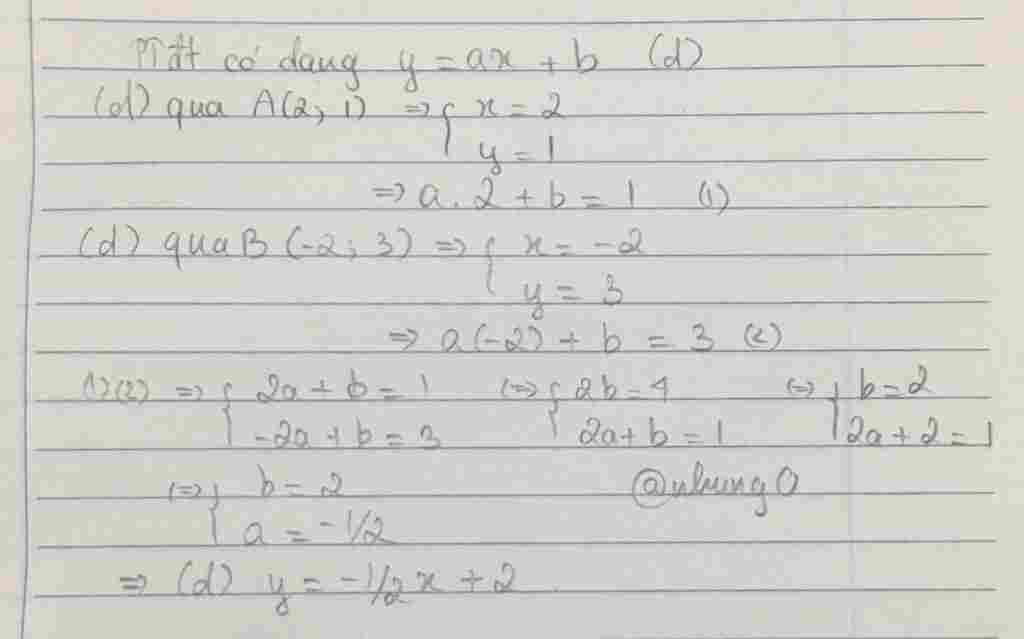 Ptđt có dạng y = ax + b (d)
(d) qua A(2; 1) => { x = 2
y = 1
=> a.2 + b = 1 (1)
(d) qua B (-2; 3) => { x = -2
y = 3
=> a(-2) + b = 3 (2)
1)(2) => { 2a + b = 1 (=> { 2b = 4 (=> { b = 2
-2a + b = 3 2a + b = 1 2a + 2 = 1
(=> { b = 2 @nhung0
a = -1/2
=> (d) y = -1/2x + 2